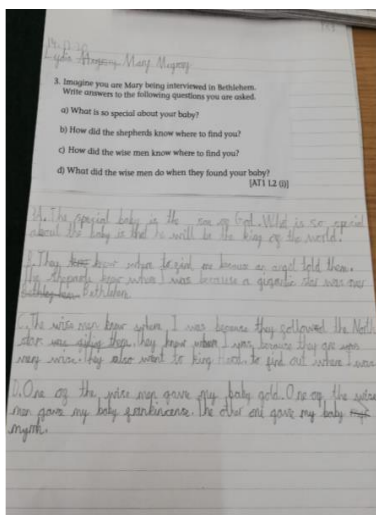 3. Imagine you are Mary being interviewed in Bethlehem.
Write answers to the following questions you are asked.
a) What is so special about your baby?
b) How did the shepherds know where to find you?
c) How did the wise men know where to find you?
d) What did the wise men do when they found your baby?
[AT1 L2 (i)]
A. The special baby is the son of God. What is so special
about the baby is that he will be the king of the world.
B. They know where to find me because an angel told them.
The shepards know where I was because a gigantic star was over
Bethlehem.
C. The wise men knew where I was because they followed the North
star. They knew where I was because they are
very wise. They also went to King to find out where I was
D. One of the wise men gave my baby gold. One of the wise
men gave my baby frankincence. The other one gave my baby
myrrh.